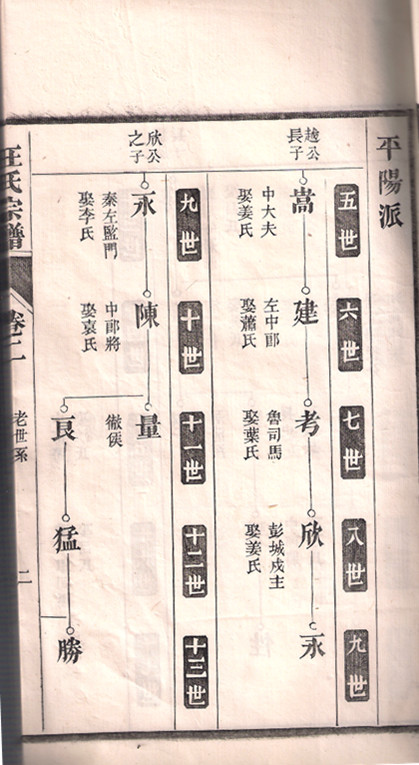 平陽派
五世
六世
七世
八世
九世
越公
長子
嵩
建
考
欣
永
中大夫
娶姜氏
左中郎
娶蕭氏
魯司馬
娶葉氏
彭城戍主
娶姜氏
九世
十世
十一世
十二世
十三世
欣公
之子
永
陳
量
秦左監門
娶李氏
中郎將
娶袁氏
徹侯
良
猛
勝
汪氏宗譜
卷二
老世系
二